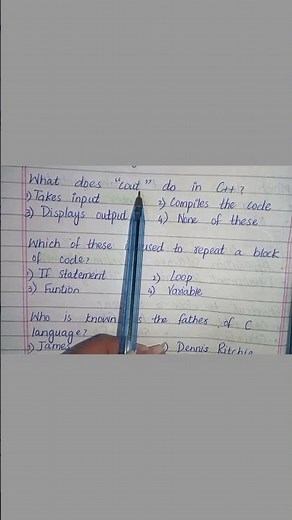 What does "cout" do in C++?
1) Takes input 2) Compiles the code
3) Displays output 4) None of these
Which of these used to repeat a block
of code?
1) If statement 2) Loop
3) Funtion 4) Variable
Who is known the father of C
language?
1) James 2) Dennis Ritchie